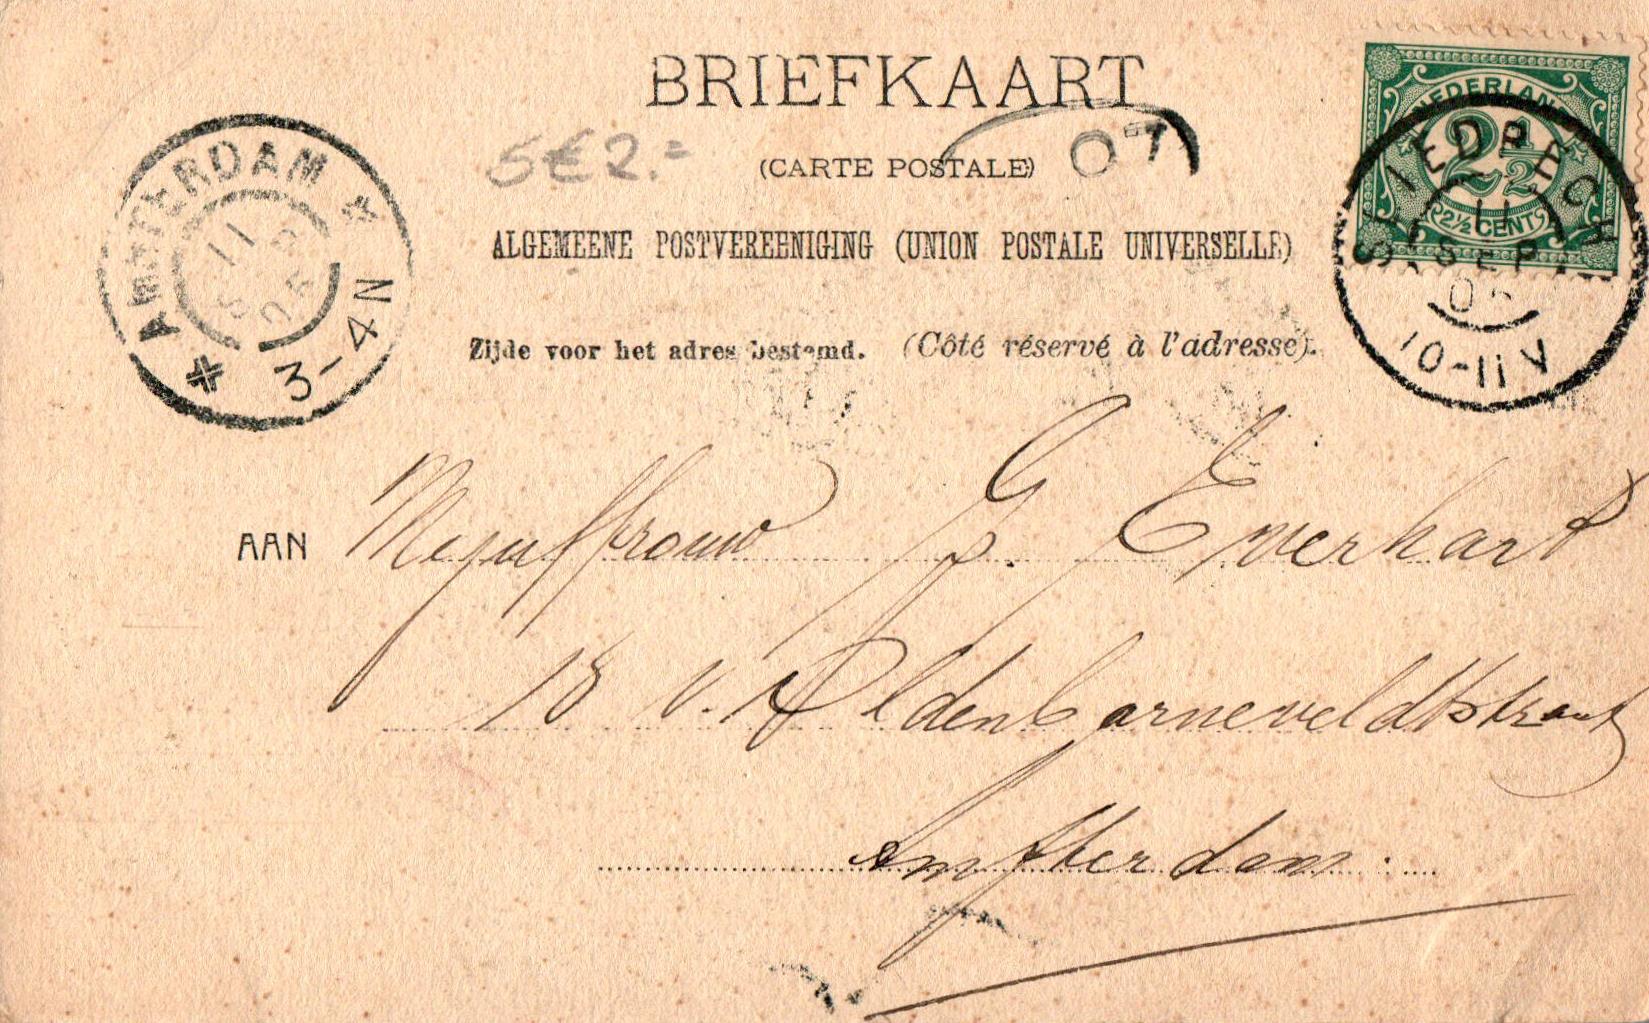 BRIEFKAART
5€2.=
07
(CARTE POSTALE)
ALGEMEENE POSTVEREENIGING (UNION POSTALE UNIVERSELLE)
Zijde voor het adres bestemd. (Côté réservé à l'adresse).
AMSTERDAM
11
05
3-4N
NEDERLAND
2½
2½ CENT
SLIEDRECHT
11
SEP
05
10-11V
AAN Mejuffrouw G. Everhart
18 v. Oldenbarneveldtstraat
Amsterdam.